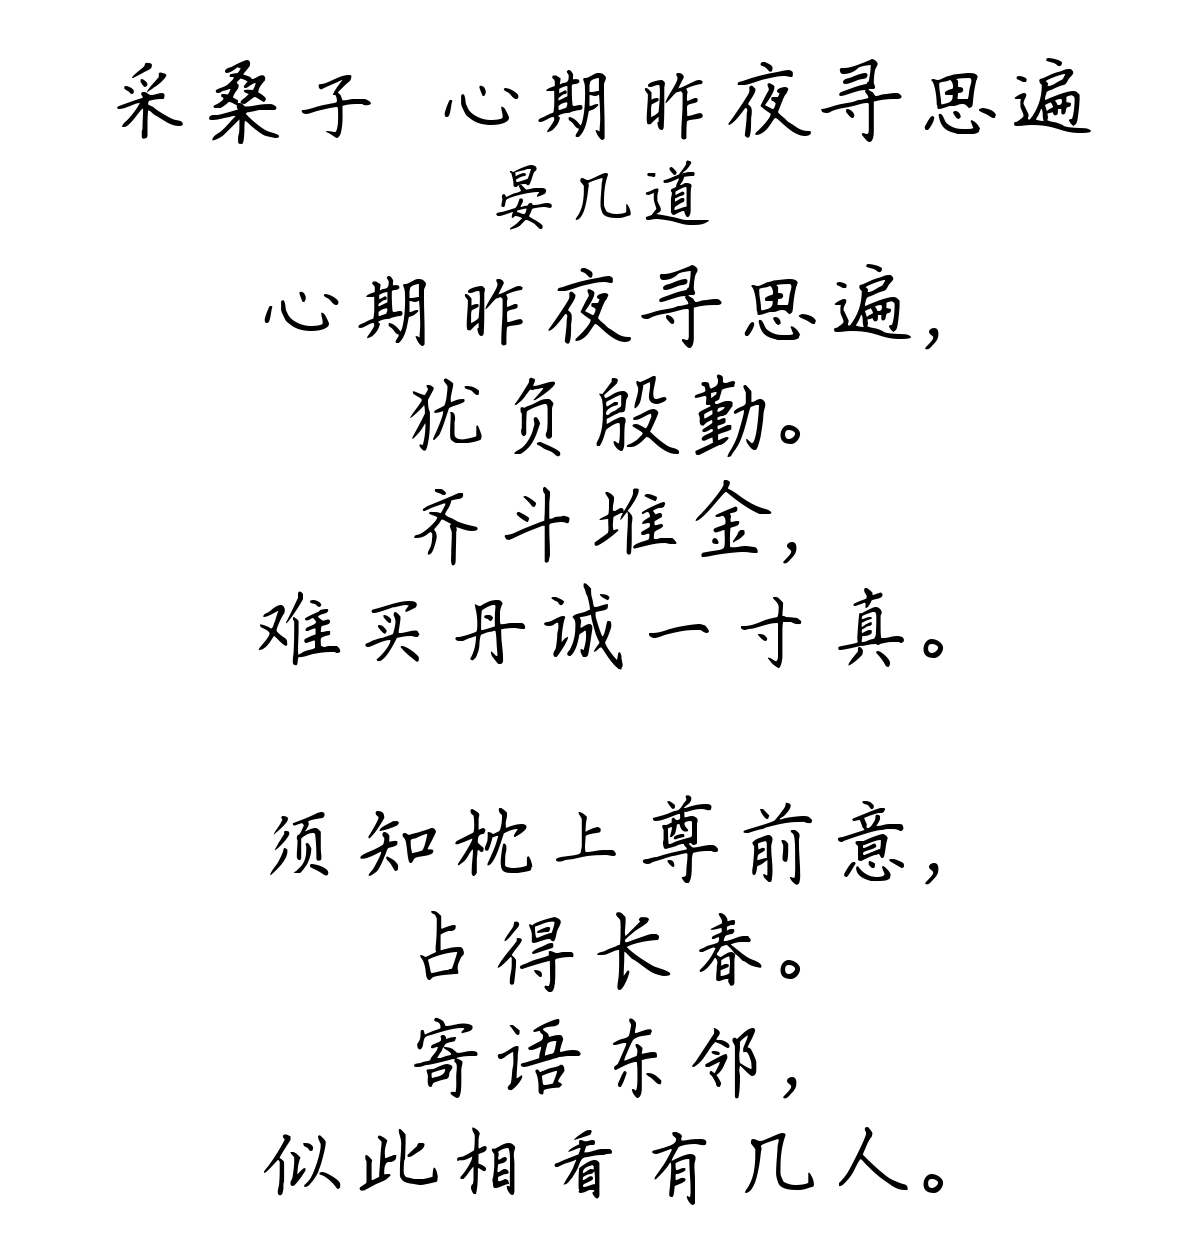 采桑子 心期昨夜寻思遍
晏几道
心期昨夜寻思遍，
犹负殷勤。
齐斗堆金，
难买丹诚一寸真。
须知枕上尊前意，
占得长春。
寄语东邻，
似此相看有几人。